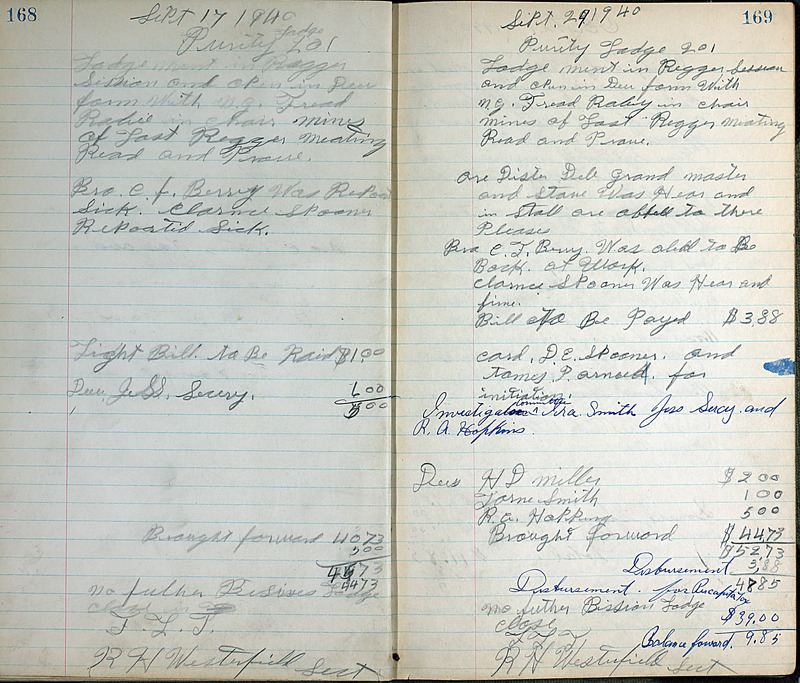 168
Sept 17 1940
Purity Lodge 201
Lodge ment in Regger
Session and open in Due
form With N.G. Fread
Rabie in chair mines
of Last Regger meating
Read and Prove.
Bro. C. J. Berry Was Repoat
Sick. Clarnce Spooner
Repoatid Sick.
Light Bill. to Be Paid $1 00
Dues Jess. Sercy. 1 00
5 00
Brought forward 40 73
5 00
45 73
44 73
no futher Bissives Lodge
close in
F. L. T.
R H Westerfield Sect
169
Sept. 24 1940
Purity Lodge 201
Lodge ment in Regger Session
and open in Due form With
N.G. Fread Rabey in chair
mines of Last Regger meating
Read and Prove.
are Dister Deb Grand master
and Stave Was Hear and
in Stall are abbell to there
Pleases
Bro C. J. Berry Was abell to Be
Back. at Work.
Clarnce Spooner Was Hear and
fine.
Bill to Be Payed $3.88
card. D. E. Spooner. and
James P. arnold. for
initiation.
Investigation Committee Ira Smith Jess Sercy and
R. A. Hopkins
Dues H D miller $2 00
Jorne Smith 1 00
R. a. Hopking 5 00
Brought forward $44 73
$52 73
Disbursement 3.88
48 85
Disbursement for
no futher Bission Lodge $39.00
close
F L T Balance forward. 9.85
R H Westerfield Sect